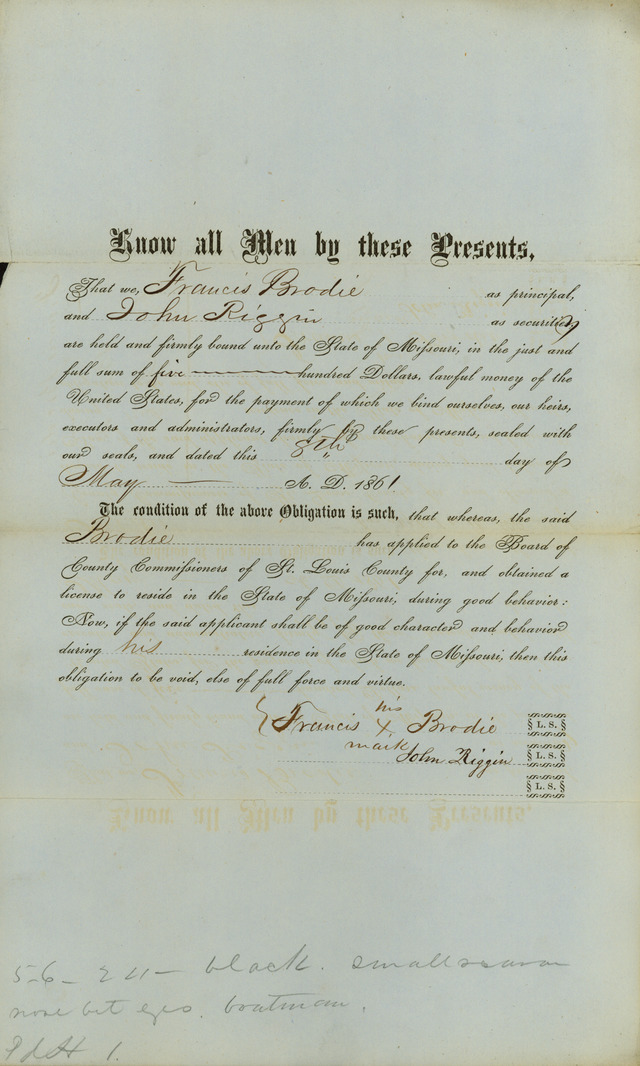 Know all Men by these Presents,
That we, Francis Brodie as principal,
and John Riggin as securities
are held and firmly bound unto the State of Missouri, in the just and
full sum of five hundred Dollars, lawful money of the
United States, for the payment of which we bind ourselves, our heirs,
executors and administrators, firmly by these presents, sealed with
our seals, and dated this 8th day of
May A. D. 1861.
The condition of the above Obligation is such, that whereas, the said
Brodie has applied to the Board of
County Commissioners of St. Louis County for, and obtained a
license to reside in the State of Missouri, during good behavior:
Now, if the said applicant shall be of good character and behavior
during his residence in the State of Missouri, then this
obligation to be void, else of full force and virtue.
his
Francis X Brodie § L. S. §
mark
John Riggin § L. S. §
§ L. S. §
5-6- black. small scar on
nose bet eyes. boatman.